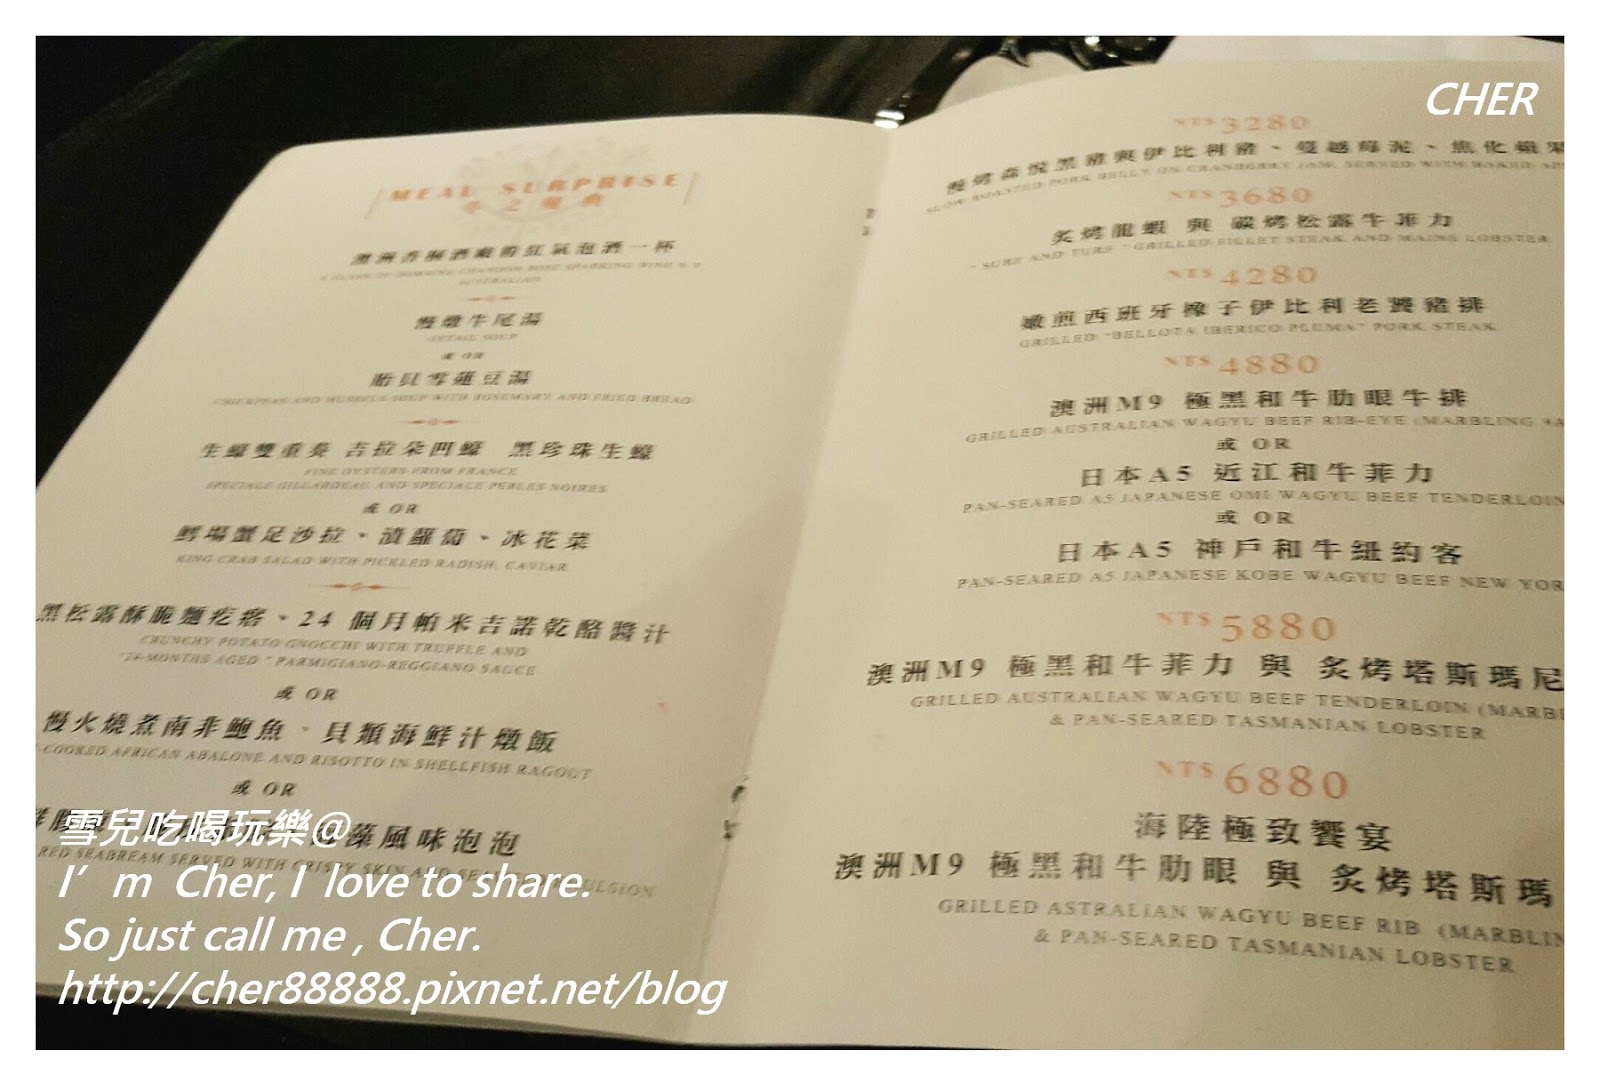 CHER
MEAL SURPRISE
澳洲香桐酒廠粉紅氣泡酒一杯
AUSTRALIAN
慢燉牛尾湯
OXTAIL SOUP
或 OR
胎貝雪蓮豆湯
CHICKPEAS AND MUSSELS SOUP WITH ROSEMARY AND FRIED BREAD
生蠔雙重奏 吉拉朵凹蠔 黑珍珠生蠔
FINE OYSTERS FROM FRANCE
SPECIALE GILLARDEAU AND SPECIALE PERLES NOIRES
或 OR
鱈場蟹足沙拉、漬蘿蔔、冰花菜
KING CRAB SALAD WITH PICKLED RADISH, CAVIAR
黑松露酥脆麵疙瘩、24 個月帕米吉諾乾酪醬汁
CRUNCHY POTATO GNOCCHI WITH TRUFFLE AND
"24-MONTHS AGED" PARMIGIANO-REGGIANO SAUCE
或 OR
慢火燒煮南非鮑魚、貝類海鮮汁燉飯
-COOKED AFRICAN ABALONE AND RISOTTO IN SHELLFISH RAGOUT
或 OR
藻風味泡泡
RED SEABREAM SERVED WITH CRISPY SKIN AND
NT$3280
慢烤森悅黑豬與伊比利豬、蔓越莓泥、焦化蘋果
SLOW ROASTED PORK BELLY ON CRANBERRY JAM, SERVED WITH BAKED AP
NT$3680
炙烤龍蝦 與 碳烤松露牛菲力
"SURF AND TURF" GRILLED FILLET STEAK AND MAINE LOBSTER
NT$4280
嫩煎西班牙橡子伊比利老饕豬排
GRILLED "BELLOTA IBERICO PLUMA" PORK STEAK
NT$4880
澳洲M9 極黑和牛肋眼牛排
GRILLED AUSTRALIAN WAGYU BEEF RIB-EYE (MARBLING 9A
或 OR
日本A5 近江和牛菲力
PAN-SEARED A5 JAPANESE OMI WAGYU BEEF TENDERLOIN
或 OR
日本A5 神戶和牛紐約客
PAN-SEARED A5 JAPANESE KOBE WAGYU BEEF NEW YOR
NT$5880
澳洲M9 極黑和牛菲力 與 炙烤塔斯瑪尼
GRILLED AUSTRALIAN WAGYU BEEF TENDERLOIN (MARB
& PAN-SEARED TASMANIAN LOBSTER
NT$6880
海陸極致饗宴
澳洲M9 極黑和牛肋眼 與 炙烤塔斯瑪
GRILLED ASTRALIAN WAGYU BEEF RIB (MARBLIN
& PAN-SEARED TASMANIAN LOBSTER
雪兒吃喝玩樂@
I'm Cher, I love to share.
So just call me , Cher.
http://cher88888.pixnet.net/blog